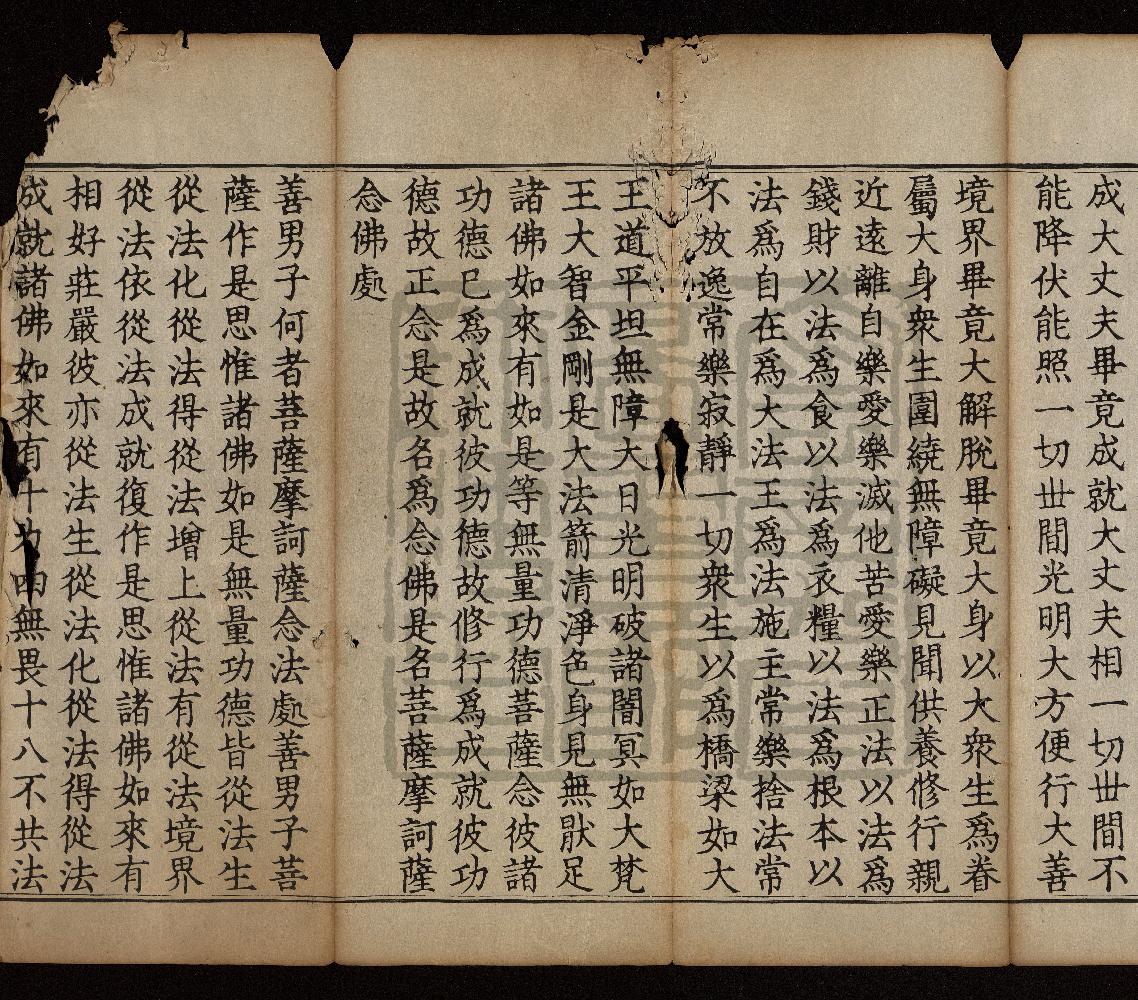 成大丈夫畢竟成就大丈夫相一切丗間不
能降伏能照一切丗間光明大方便行大善
境界畢竟大解脫畢竟大身以大衆生爲眷
屬大身衆生圍繞無障礙見聞供養修行親
近遠離自樂愛樂滅他苦愛樂正法以法爲
錢財以法爲食以法爲衣糧以法爲根本以
法爲自在爲大法王爲法施主常樂捨法常
不放逸常樂寂靜一切衆生以爲橋梁如大
王道平坦無障大日光明破諸闇冥如大梵
王大智金剛是大法箭清淨色身見無猒足
諸佛如來有如是等無量功德菩薩念彼諸
功德已爲成就彼功德故修行爲成就彼功
德故正念是故名爲念佛是名菩薩摩訶薩
念佛處
善男子何者菩薩摩訶薩念法處善男子菩
薩作是思惟諸佛如是無量功德皆從法生
從法化從法得從法增上從法有從法境界
從法依從法成就復作是思惟諸佛如來有
相好莊嚴彼亦從法生從法化從法得從法
成就諸佛如來有十力四無畏十八不共法